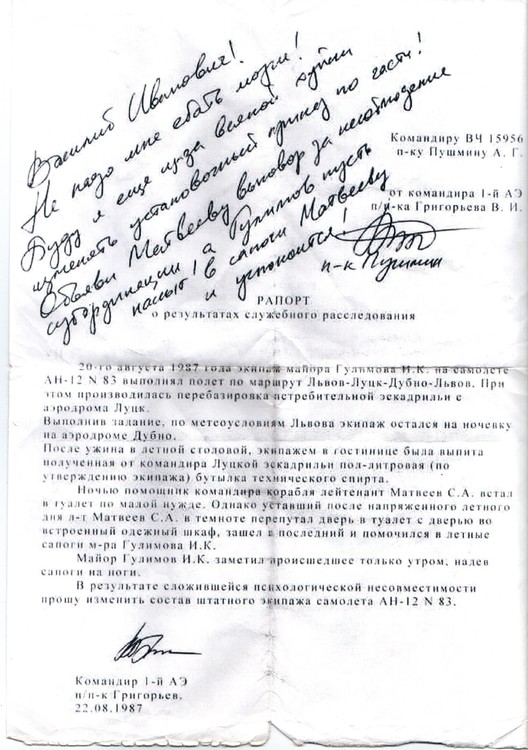 Василий Иванович!
Не надо мне ебать мозги!
Буду я еще из-за всякой хуйни
изменять установочный приказ по части!
Объяви Матвееву выговор за несоблюдение
субординации а Гулимов пусть
нассыт в сапоги Матвееву
и успокоится!
п-к Пушмин
Командиру ВЧ 15956
п-ку Пушмину А. Г.
от командира 1-й АЭ
п/п-ка Григорьева В. И.
РАПОРТ
о результатах служебного расследования
20-го августа 1987 года экипаж майора Гулимова И.К. на самолете
АН-12 N 83 выполнял полет по маршрут Львов-Луцк-Дубно-Львов. При
этом производилась перебазировка истребительной эскадрильи с
аэродрома Луцк.
Выполнив задание, по метеоусловиям Львова экипаж остался на ночевку
на аэродроме Дубно.
После ужина в летной столовой, экипажем в гостинице была выпита
полученная от командира Луцкой эскадрильи пол-литровая (по
утверждению экипажа) бутылка технического спирта.
Ночью помощник командира корабля лейтенант Матвеев С.А. встал
в туалет по малой нужде. Однако уставший после напряженного летного
дня л-т Матвеев С.А. в темноте перепутал дверь в туалет с дверью во
встроенный одежный шкаф, зашел в последний и помочился в летные
сапоги м-ра Гулимова И.К.
Майор Гулимов И.К. заметил происшедшее только утром, надев
сапоги на ноги.
В результате сложившейся психологической несовместимости
прошу изменить состав штатного экипажа самолета АН-12 N 83.
Командир 1-й АЭ
п/п-к Григорьев.
22.08.1987